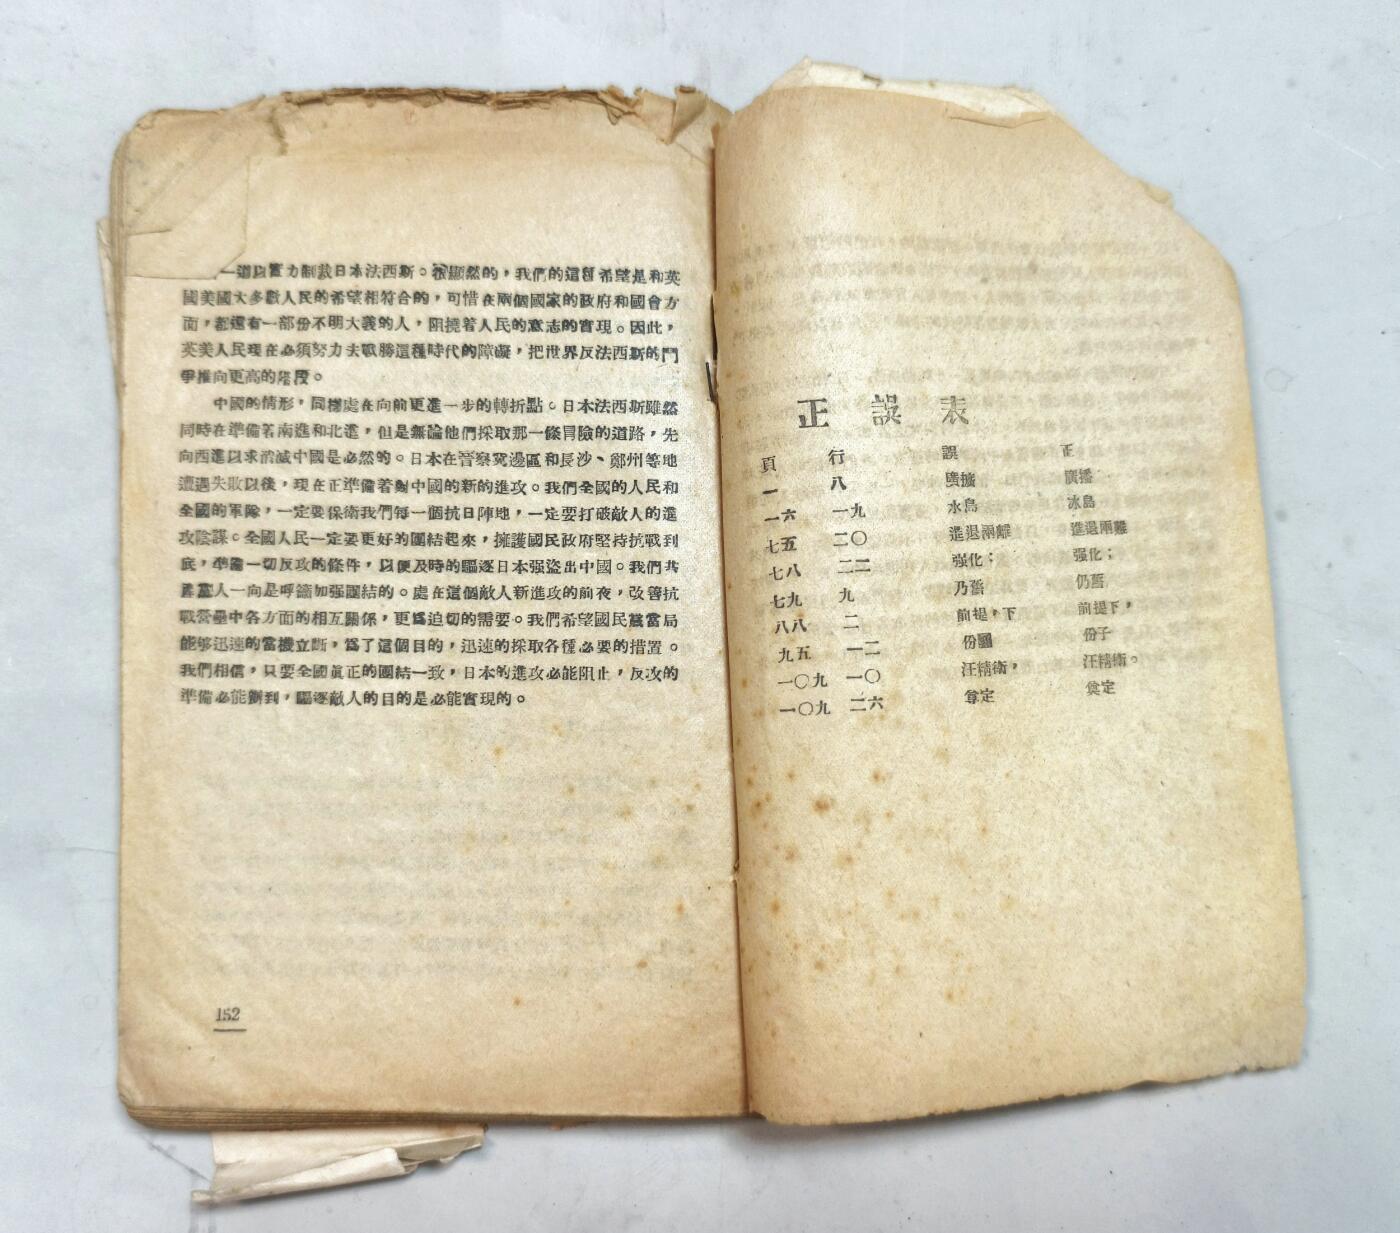 一道以實力制裁日本法西斯。很顯然的，我們的這種希望是和英
國美國大多數人民的希望相符合的，可惜在兩個國家的政府和國會方
面，都還有一部份不明大義的人，阻撓着人民的意志的實現。因此，
英美人民現在必須努力去戰勝這種時代的障礙，把世界反法西斯的鬥
爭推向更高的階段。
中國的情形，同樣處在向前更進一步的轉折點。日本法西斯雖然
同時在準備着南進和北進，但是無論他們採取那一條冒險的道路，先
向西進以求消滅中國是必然的。日本在晉察冀邊區和長沙、鄭州等地
遭遇失敗以後，現在正準備着對中國的新的進攻。我們全國的人民和
全國的軍隊，一定要保衛我們每一個抗日陣地，一定要打破敵人的進
攻陰謀。全國人民一定要更好的團結起來，擁護國民政府堅持抗戰到
底，準備一切反攻的條件，以便及時的驅逐日本强盜出中國。我們共
產黨人一向是呼籲加强團結的。處在這個敵人新進攻的前夜，改善抗
戰營壘中各方面的相互關係，更爲迫切的需要。我們希望國民黨當局
能够迅速的當機立斷，爲了這個目的，迅速的採取各種必要的措置。
我們相信，只要全國眞正的團結一致，日本的進攻必能阻止，反攻的
準備必能辦到，驅逐敵人的目的是必能實現的。
152
正誤表
頁 行 誤 正
一 八 廣擴 廣播
一六 一九 水島 冰島
七五 二〇 進退兩離 進退兩難
七八 二二 强化； 强化；
七九 九 乃舊 仍舊
八八 二 前提，下 前提下，
九五 一二 份 份子
一〇九 一〇 汪精衛， 汪精衛。
一〇九 二六 定 奠定